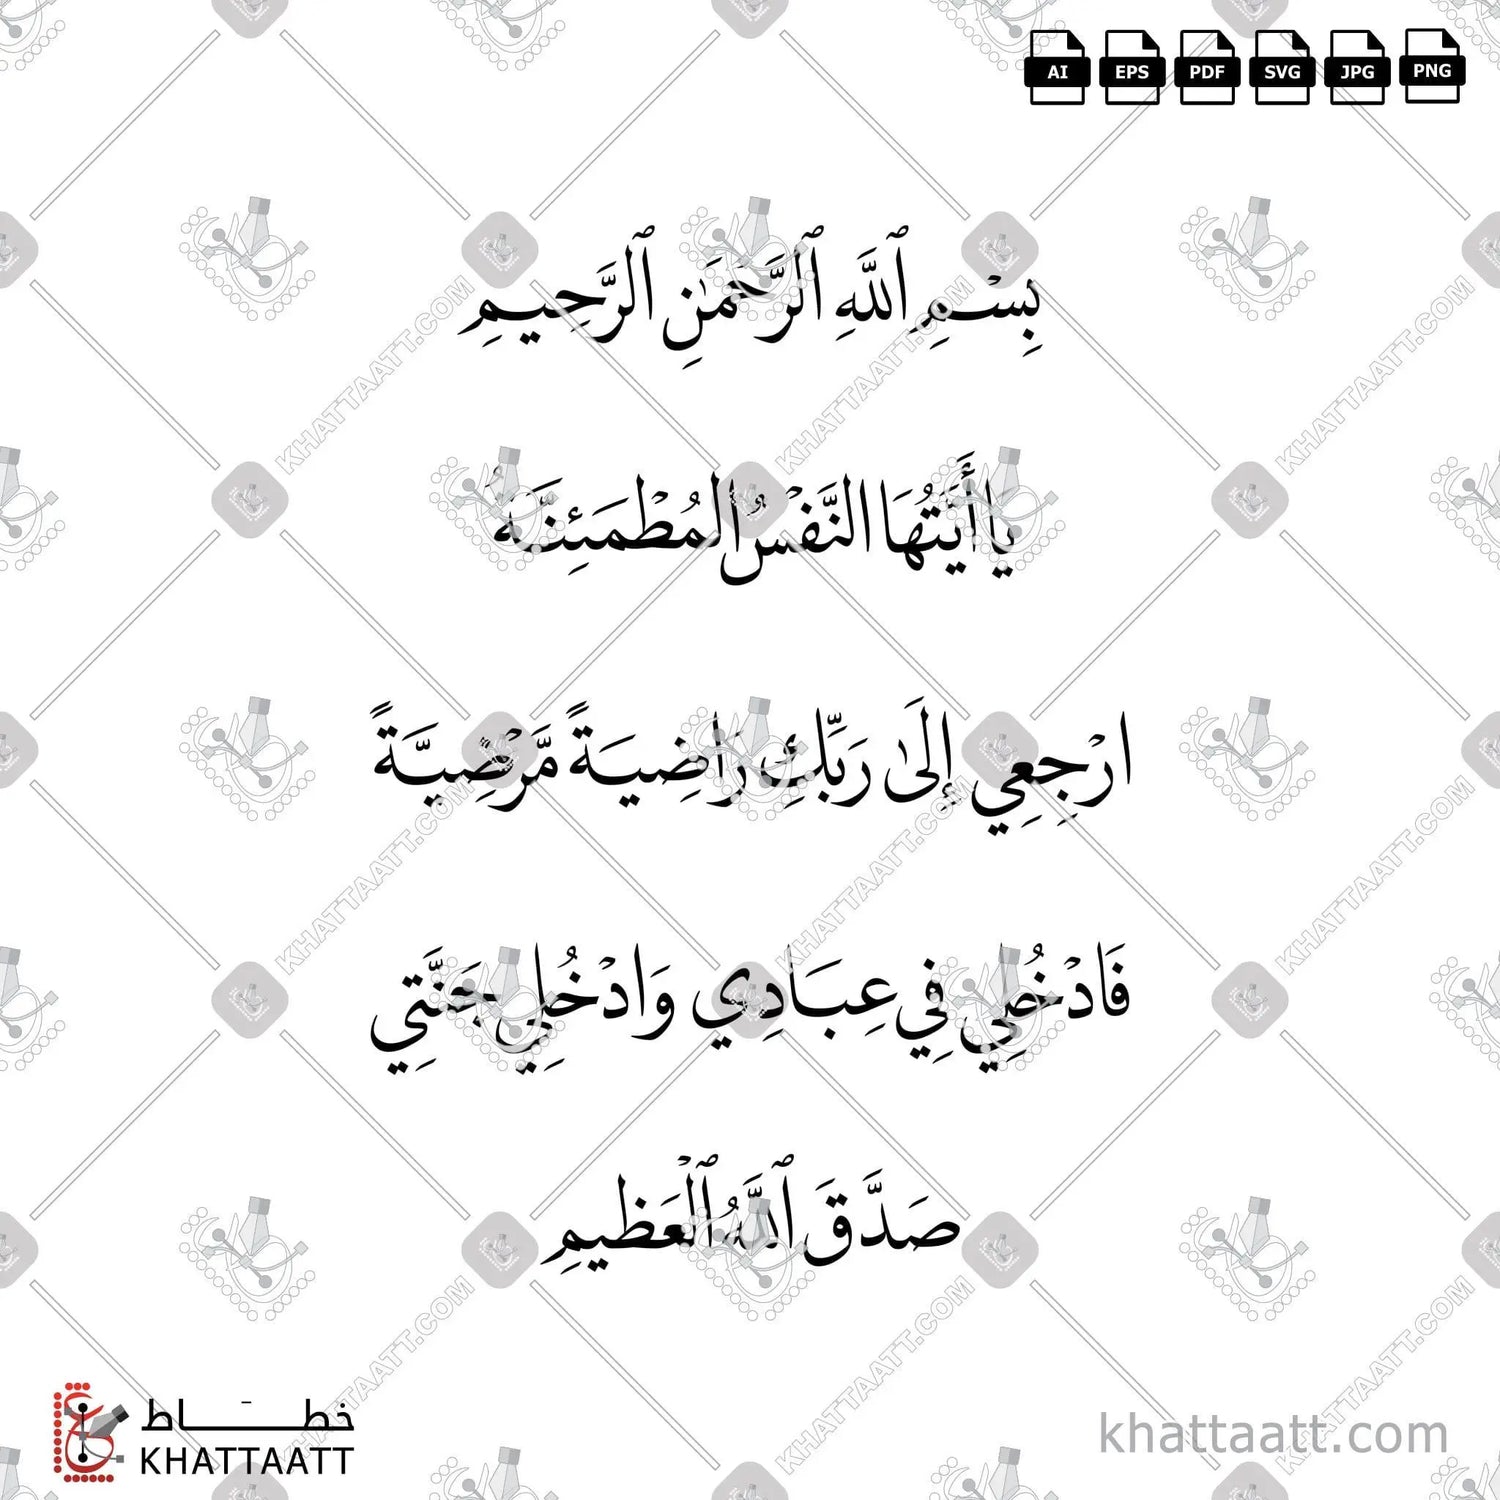 AI EPS PDF SVG JPG PNG
بِسْمِ ٱللَّهِ ٱلرَّحْمَٰنِ ٱلرَّحِيمِ
يَا أَيَّتُهَا النَّفْسُ الْمُطْمَئِنَّةُ
ارْجِعِي إِلَىٰ رَبِّكِ رَاضِيَةً مَّرْضِيَّةً
فَادْخُلِي فِي عِبَادِي وَادْخُلِي جَنَّتِي
صَدَّقَ ٱللَّهُ ٱلْعَظِيمِ
خطاط
KHATTAATT
khattaatt.com
KHATTAATT.COM